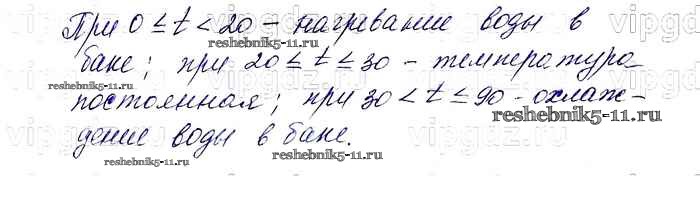 При 0 ≤ t < 20 – нагревание воды в
баке; при 20 ≤ t ≤ 30 – температура
постоянная; при 30 < t ≤ 90 - охлаж-
дение воды в баке.
reshebnik5-11.ru
reshebnik5-11.ru
reshebnik5-11.ru
reshebnik5-11.ru
reshebnik5-11.ru
vipgdz.ru